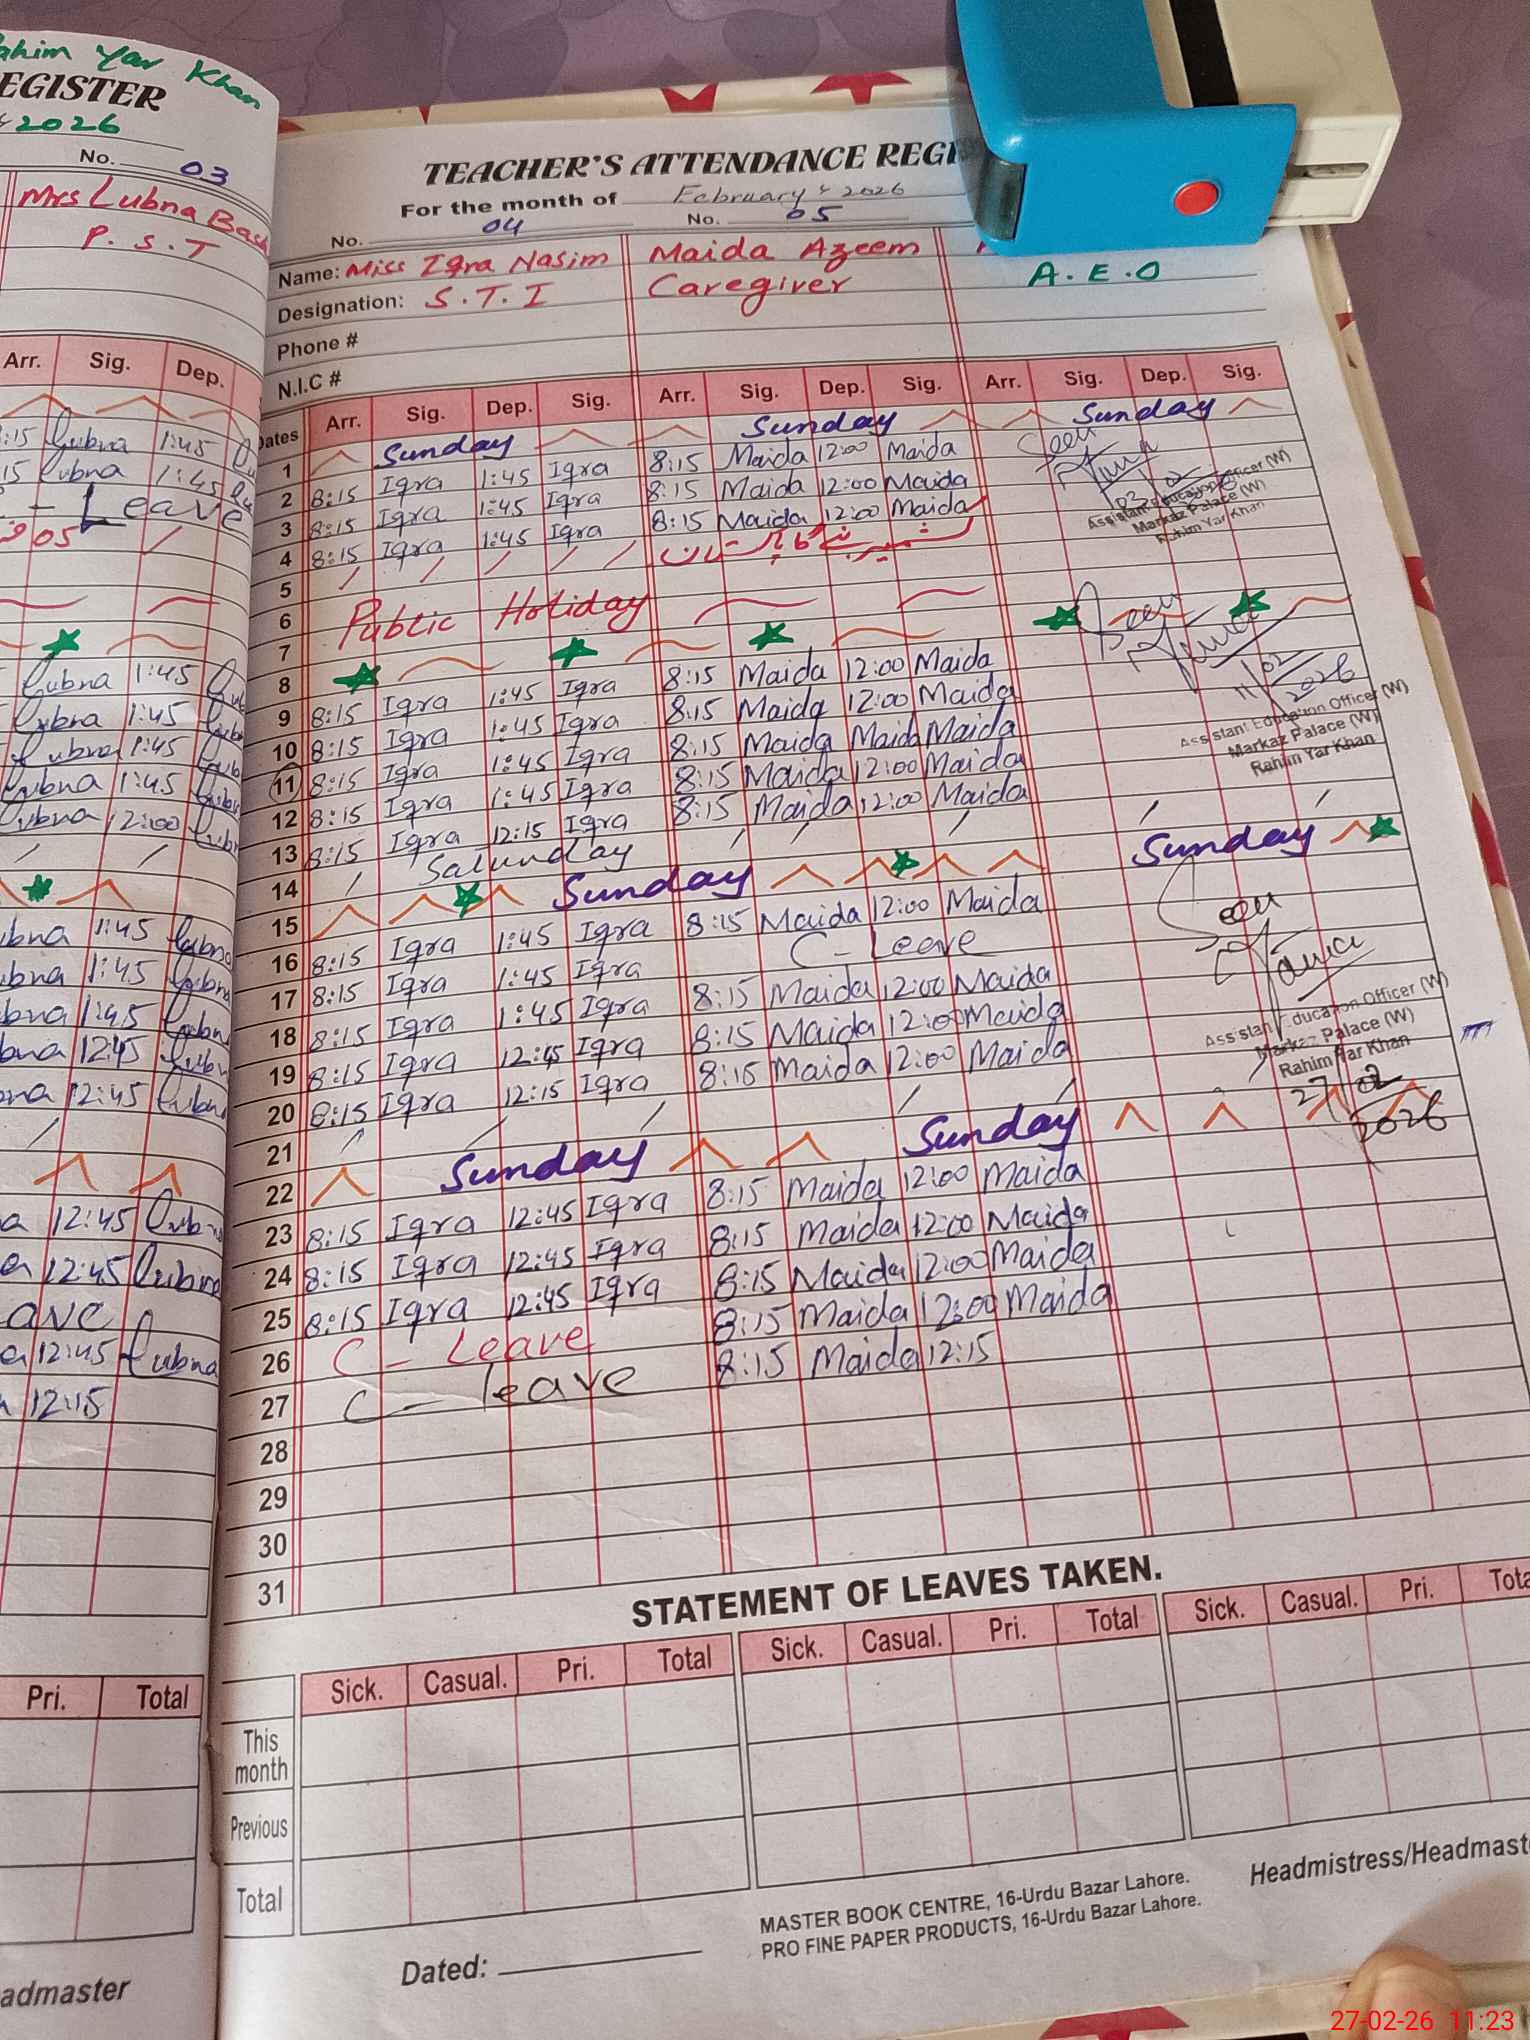 ahim Yar Khan
EGISTER
2026
No. 03
Mrs Lubna Bas
P.S.T
Arr. Sig. Dep.
:15 Lubna 1:45
15 Lubna 1:45
- Leave
05
Lubna 1:45
Lubna 1:45
Lubna 1:45
Lubna 1:45
Lubna 12:00 Lubn
ubna 1:45 Lubna
ubna 1:45 Lubna
bna 1:45 Lubna
bna 12:45 Lubn
na 12:45 Lubna
a 12:45 Lubna
a 12:45 Lubna
ave
a 12:45 Lubna
12:15
Pri. Total
admaster
TEACHER'S ATTENDANCE REGI
For the month of February, 2026
No. 04 No. 05
Name: Miss Iqra Nasim Maida Azeem
Designation: S.T.I Caregiver A.E.O
Phone #
N.I.C #
Dates Arr. Sig. Dep. Sig. Arr. Sig. Dep. Sig. Arr. Sig. Dep. Sig.
1 Sunday Sunday Sunday
2 8:15 Iqra 1:45 Iqra 8:15 Maida 12:00 Maida Seen
3 8:15 Iqra 1:45 Iqra 8:15 Maida 12:00 Maida
4 8:15 Iqra 1:45 Iqra 8:15 Maida 12:00 Maida
Assistant Education Officer (W)
Markaz Palace (W)
Rahim Yar Khan
5 Public Holiday کشمیر بنے گا پاکستان
6
7
8
Seen
11/02/2026
Assistant Education Officer (W)
Markaz Palace (W)
Rahim Yar Khan
9 8:15 Iqra 1:45 Iqra 8:15 Maida 12:00 Maida
10 8:15 Iqra 1:45 Iqra 8:15 Maida 12:00 Maida
11 8:15 Iqra 1:45 Iqra 8:15 Maida Maida Maida
12 8:15 Iqra 1:45 Iqra 8:15 Maida 12:00 Maida
13 8:15 Iqra 12:15 Iqra 8:15 Maida 12:00 Maida
14 Saturday
15 Sunday Sunday
16 8:15 Iqra 1:45 Iqra 8:15 Maida 12:00 Maida Seen
17 8:15 Iqra 1:45 Iqra C - Leave
18 8:15 Iqra 1:45 Iqra 8:15 Maida 12:00 Maida
19 8:15 Iqra 12:45 Iqra 8:15 Maida 12:00 Maida
20 8:15 Iqra 12:15 Iqra 8:15 Maida 12:00 Maida
Assistant Education Officer (W)
Markaz Palace (W)
Rahim Yar Khan
27/02/2026
21
22 Sunday Sunday
23 8:15 Iqra 12:45 Iqra 8:15 Maida 12:00 Maida
24 8:15 Iqra 12:45 Iqra 8:15 Maida 12:00 Maida
25 8:15 Iqra 12:45 Iqra 8:15 Maida 12:00 Maida
26 C - Leave 8:15 Maida 12:00 Maida
27 C - leave 8:15 Maida 12:15
28
29
30
31
STATEMENT OF LEAVES TAKEN.
Sick. Casual. Pri. Total Sick. Casual. Pri. Total Sick. Casual. Pri. Tota
This month
Previous
Total
MASTER BOOK CENTRE, 16-Urdu Bazar Lahore.
PRO FINE PAPER PRODUCTS, 16-Urdu Bazar Lahore.
Headmistress/Headmast
Dated:
27-02-26 11:23